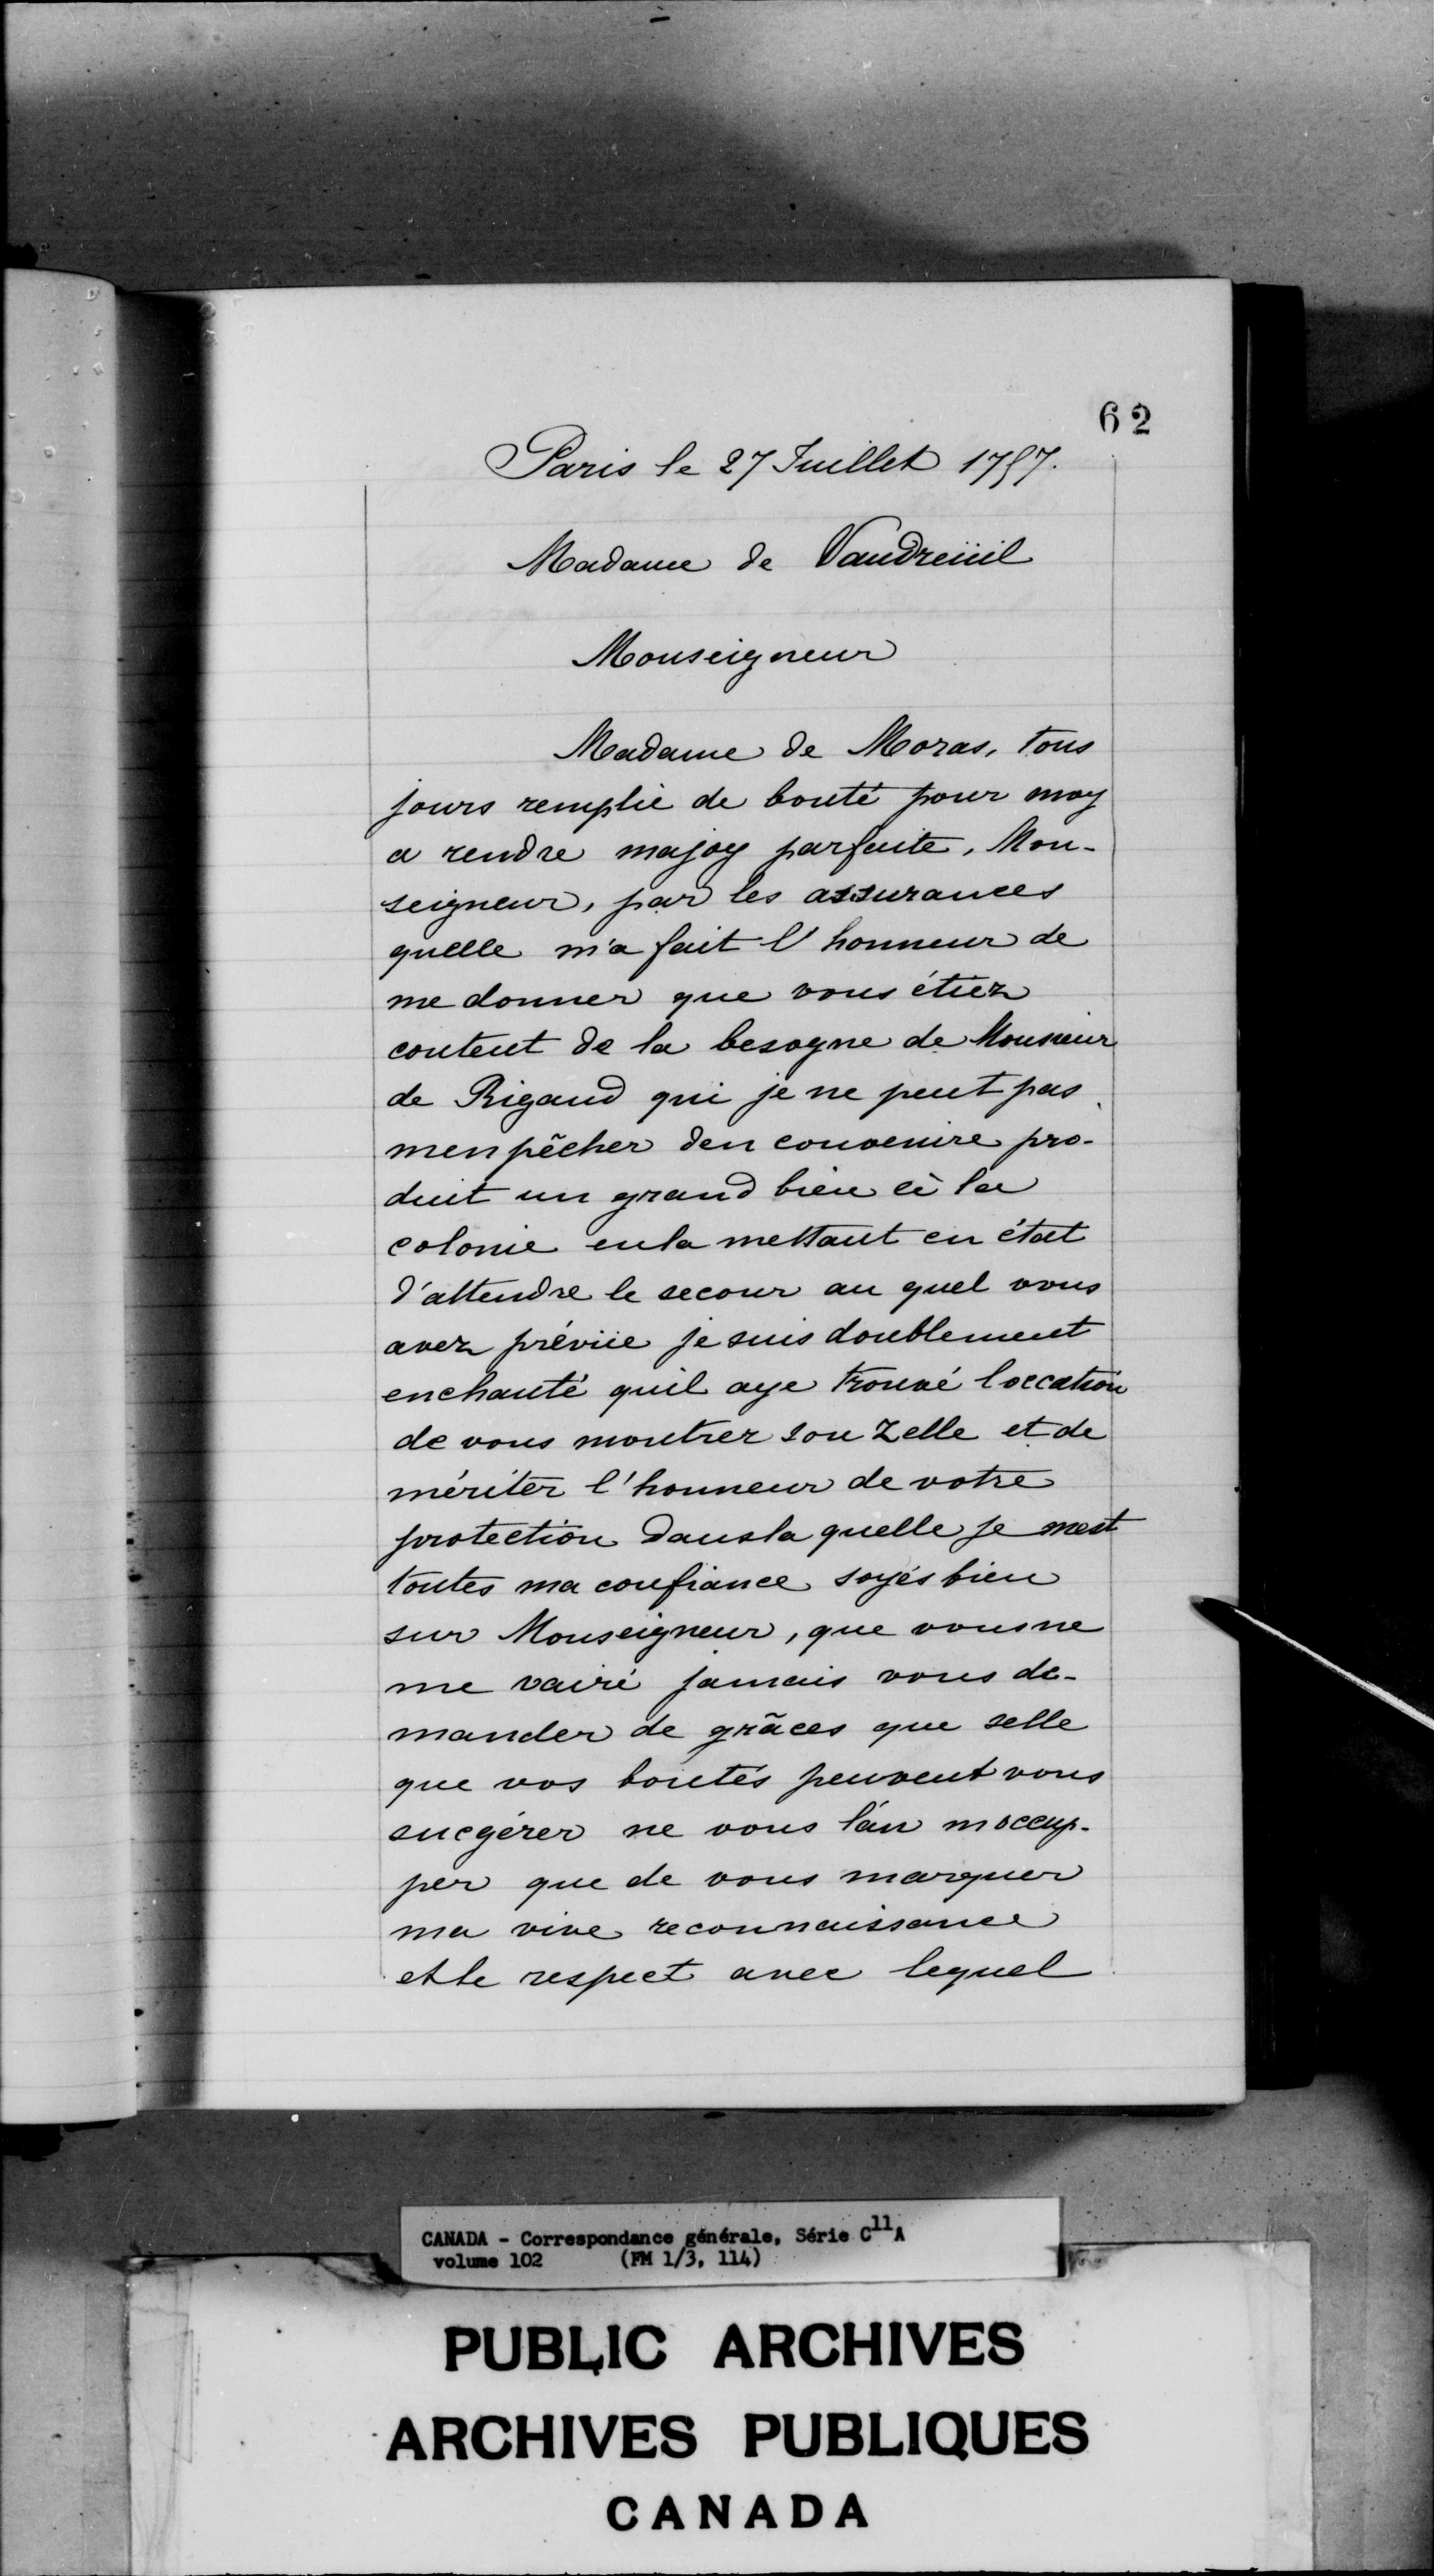 62
Paris le 27 Juillet 1757.
Madame de Vaudreüil
Monseigneur
Madame de Moras, tous
jours remplie de bonté pour moy
a rendre majoy parfaite, Mon-
seigneur, par les assurances
quelle m'a fait l'honneur de
me donner que vous étiez
content de la besogne de Monsieur
de Rigaud qui je ne peut pas
menpêcher den convenire pro-
duit un grand bien à la
colonie enla mettant en état
d'attendre le secour au quel vous
avez prévüe je suis doublement
enchanté quil aye trouvé loccation
de vous montrer son Zelle et de
mériter l'honneur de votre
protection dansla quelle je mest
toutes ma confiance soyés bien
sur Monseigneur, que vousne
me vairé jamais vous de-
mander de grâces que selle
que vos bontés peuvent vous
sucgérer ne vous l'an moccup-
per que de vous marquer
ma vive reconnaissance
et le respect avec lequel
CANADA - Correspondance générale, Série C11A
volume 102 (FM 1/3, 114)
PUBLIC ARCHIVES
ARCHIVES PUBLIQUES
CANADA